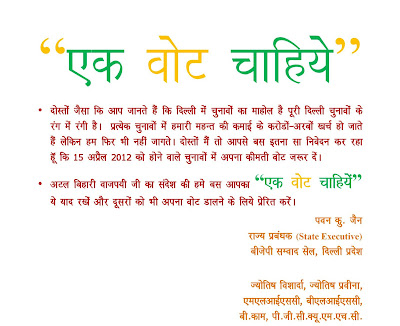 “एक वोट चाहिये”
• दोस्तों जैसा कि आप जानते हैं कि दिल्ली में चुनावों का माहोल है पूरी दिल्ली चुनावों के
रंग में रंगी है। प्रत्येक चुनावों में हमारी महन्त की कमाई के करोडों-अरबों खर्च हो जाते
हैं लेकिन हम फिर भी नहीं जागते। दोस्तों मैं तो आपसे बस इतना सा निवेदन कर रहा
हूँ कि 15 अप्रैल 2012 को होने वाले चुनावों में अपना कीमती वोट जरूर दें।
• अटल बिहारी वाजपयी जी का संदेश की हमे बस आपका “एक वोट चाहियें”
ये याद रखें और दूसरों को भी अपना वोट डालने के लिये प्रेरित करें।
पवन कु. जैन
राज्य प्रबंधक (State Executive)
बीजेपी सम्वाद सेल, दिल्ली प्रदेश
ज्योतिष विशार्दा, ज्योतिष प्रवीना,
एमएलआईएससी, बीएलआईएससी,
बी.काम, पी.जी.सी.क्यू.एम.एच.सी.